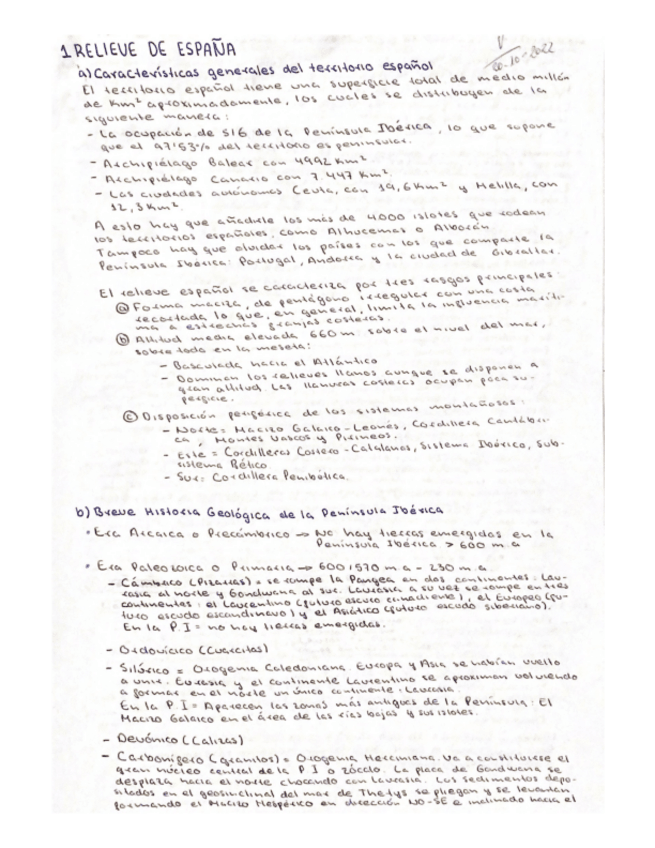 1. RELIEVE DE ESPAÑA
20-10-2022
a) Características generales del territorio español
El territorio español tiene una superficie total de medio millón
de Km² aproximadamente, los cuales se distribuyen de la
siguiente manera:
- La ocupación de 5/6 de la Península Ibérica, lo que supone
que el 97'53% del territorio es peninsular.
- Archipiélago Balear con 4992 Km².
- Archipiélago Canario con 7 447 Km².
- Las ciudades autónomas Ceuta, con 19,6 Km² y Melilla, con
12,3 Km².
A esto hay que añadirle los más de 4000 islotes que rodean
los territorios españoles, como Alhucemas o Alborán.
Tampoco hay que olvidar los países con los que comparte la
Península Ibérica: Portugal, Andorra y la ciudad de Gibraltar.
El relieve español se caracteriza por tres rasgos principales:
a) Forma maciza, de pentágono irregular con una costa
recortada lo que, en general, limita la influencia maríti-
ma a estrechas franjas costeras.
b) Altitud media elevada 660 m. sobre el nivel del mar,
sobre todo en la meseta:
- Basculada hacia el Atlántico
- Dominan los relieves llanos aunque se disponen a
gran altitud. Las llanuras costeras ocupan poca su-
perficie.
c) Disposición periférica de los sistemas montañosos:
- Norte = Macizo Galaico-Leonés, Cordillera Cantábri-
ca, Montes Vascos y Pirineos.
- Este = Cordilleras Costero-Catalanas, Sistema Ibérico, Sub-
sistema Bético.
- Sur: Cordillera Penibética.
b) Breve Historia Geológica de la Península Ibérica
• Era Arcaica o Precámbrico → No hay tierras emergidas en la
Península Ibérica > 600 m.a
• Era Paleozoica o Primaria → 600/570 m a - 230 m.a.
- Cámbrico (Pizarras) = se rompe la Pangea en dos continentes: Lau-
rasia al norte y Gondwana al sur. Laurasia a su vez se rompe en tres
continentes: el Laurentino (futuro escuro canadiense), el Europeo (fu-
turo escudo escandinavo) y el Asiático (futuro escudo siberiano).
En la P.I = no hay tierras emergidas.
- Ordovícico (Cuarcitas)
- Silúrico = Orogenia Caledoniana. Europa y Asia se habían vuelto
a unir. Eurasia y el continente Laurentino se aproximan volviendo
a formar en el norte un único continente: Laurasia.
En la P.I = Aparecen las zonas más antiguas de la Península: El
Macizo Galaico en el área de las rías bajas y sus islotes.
- Devónico (Calizas)
- Carbonífero (granitos) = Orogenia Herciniana. Va a constituirse el
gran núcleo central de la P I o zócalo. La placa de Gondwana se
desplaza hacia el norte chocando con Laurasia. Los sedimentos depo-
sitados en el geosinclinal del mar de Thetys se pliegan y se levantan
formando el Macizo Hespérico en dirección NO-SE e inclinado hacia el